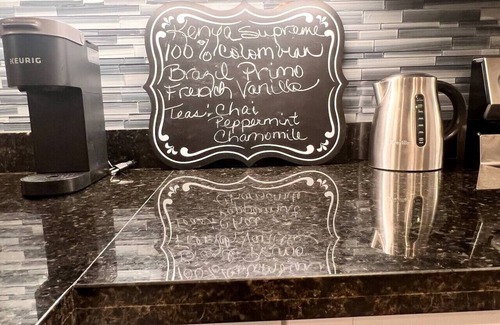 KEURIG
Kenya Supreme
100% Colombian
Brazil Primo
French Vanilla
Teas: Chai
Peppermint
Chamomile